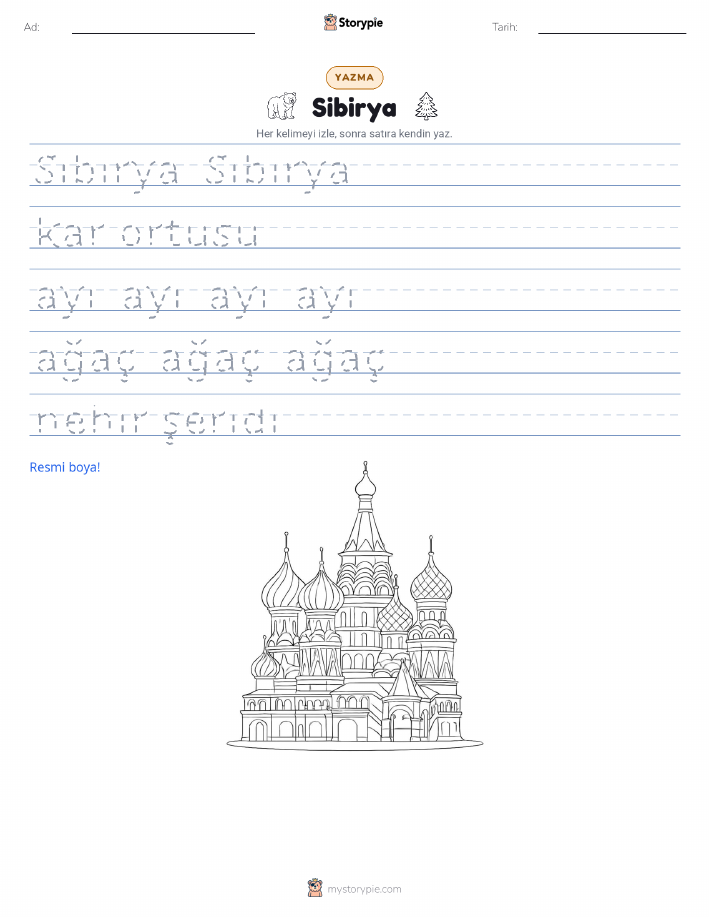 Ad:
Storypie
Tarih:
YAZMA
Sibirya
Her kelimeyi izle, sonra satıra kendin yaz.
Sıbırya Sıbırya
kar ortusu
ayı ayı ayı ayı
ağaç ağaç ağaç
nehır şerıdı
Resmi boya!
mystorypie.com